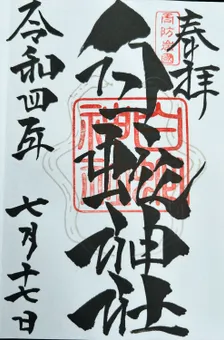 奉拝
周防国
白蛇神社
白蛇神社
令和四年
七月十七日